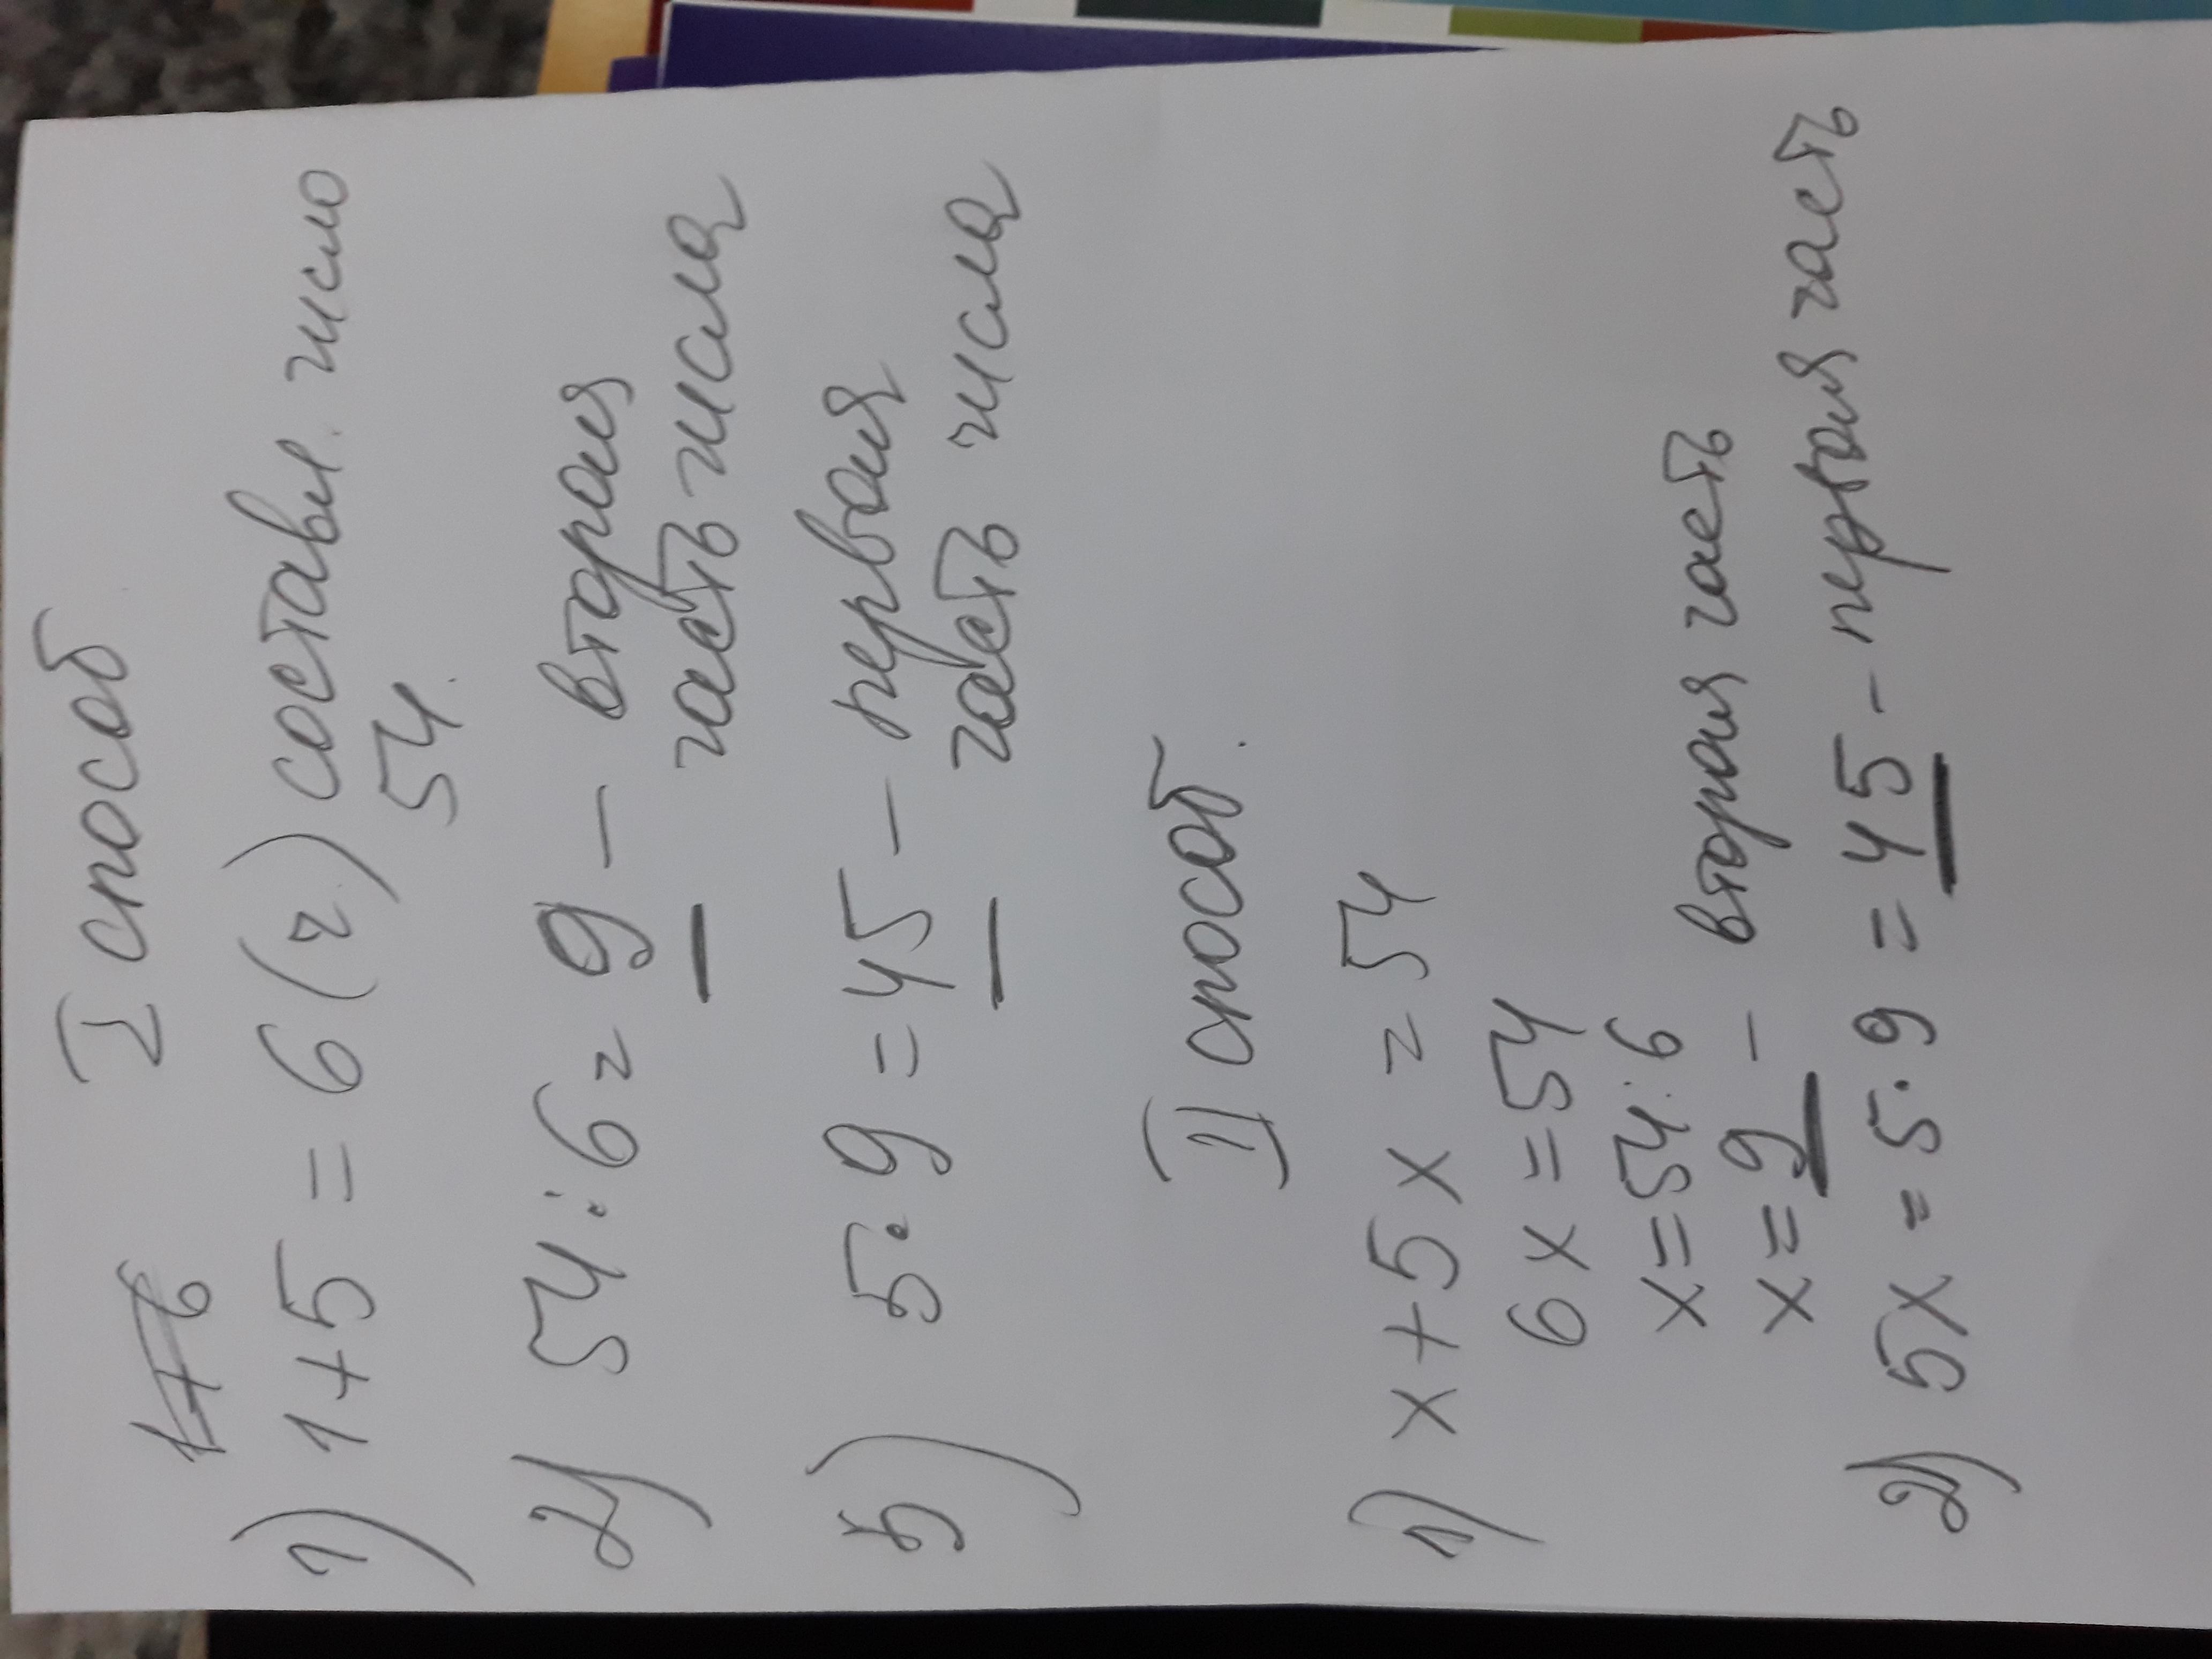 I способ
1+6
1) 1+5 = 6 (ч) составл. число
54.
2) 54:6 = 9 – вторая
часть числа
3) 5·9 = 45 – первая
часть числа
II способ.
1) x+5x = 54
6x = 54
x = 54:6
x = 9 – вторая часть
2) 5x = 5·9 = 45 – первая часть